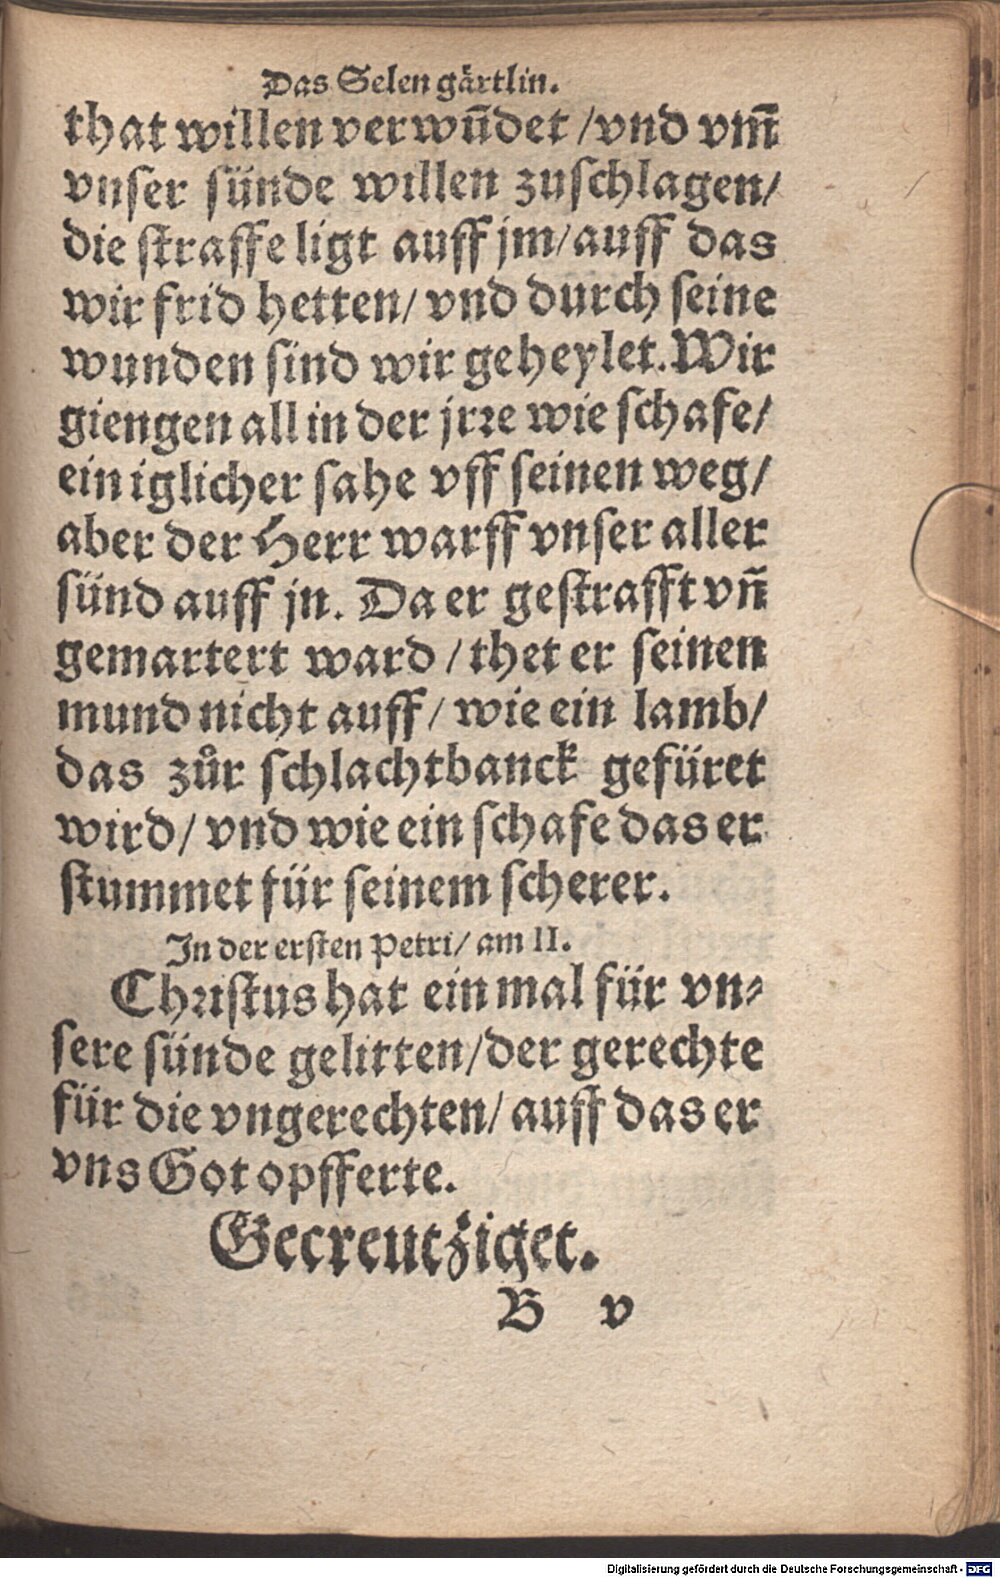 Das Selen gärtlin.
that willen verwūdet / vnd vm̄
vnser sünde willen zuschlagen/
die straffe ligt auff jm/ auff das
wir frid hetten/ vnd durch seine
wunden sind wir geheylet. Wir
giengen all in der jrre wie schafe/
ein iglicher sahe vff seinen weg/
aber der Herr warff vnser aller
sünd auff jn. Da er gestrafft vn̄
gemartert ward / thet er seinen
mund nicht auff/ wie ein lamb/
das zůr schlachtbanck gefüret
wird/ vnd wie ein schafe das er
stummet für seinem scherer.
In der ersten Petri/ am II.
Christus hat ein mal für vn⸗
sere sünde gelitten/ der gerechte
für die vngerechten/ auff das er
vns Got opfferte.
Gecreutziget.
B v
Digitalisierung gefördert durch die Deutsche Forschungsgemeinschaft - DFG